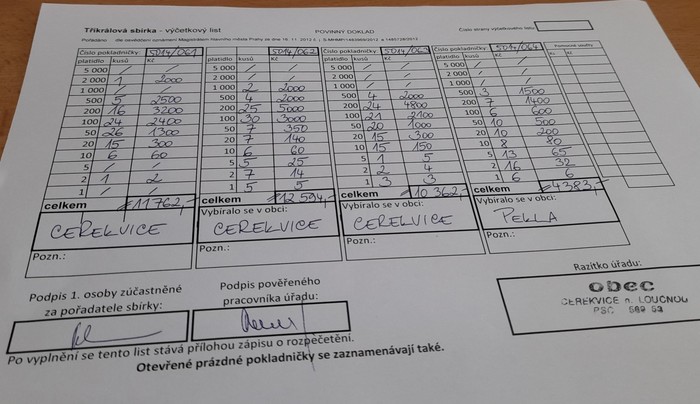 Tříkrálová sbírka - výčetkový list
POVINNÝ DOKLAD
Číslo strany výčetkového listu:
Pořádáno
dle osvědčení oznámení Magistrátem hlavního města Prahy ze dne 16. 11. 2012
Číslo pokladničky: 5014/061
platidlo kusů Kč
5 000 / /
2 000 1 2000
1 000 / /
500 5 2500
200 16 3200
100 24 2400
50 26 1300
20 15 300
10 6 60
5 / /
2 1 2
1 / /
celkem 11762,-
CEREKVICE
Pozn.:
Číslo pokladničky: 5014/062
platidlo kusů Kč
5 000 / /
2 000 / /
1 000 2 2000
500 4 2000
200 25 5000
100 30 3000
50 7 350
20 7 140
10 6 60
5 5 25
2 7 14
1 5 5
celkem 12 594,-
Vybíralo se v obci:
CEREKVICE
Pozn.:
Číslo pokladničky: 5014/063
platidlo kusů Kč
5 000 / /
2 000 / /
1 000 / /
500 4 2000
200 24 4800
100 21 2100
50 20 1000
20 15 300
10 15 150
5 1 5
2 2 4
1 3 3
celkem 10 362,-
Vybíralo se v obci:
CEREKVICE
Pozn.:
Číslo pokladničky: 5014/064
platidlo kusů Kč
5 000 / /
2 000 / /
1 000 / /
500 3 1500
200 7 1400
100 6 600
50 10 500
20 10 200
10 8 80
5 13 65
2 16 32
1 6 6
celkem 4383,-
Vybíralo se v obci:
PEKLA
Pozn.:
Podpis 1. osoby zúčastněné
za pořadatele sbírky:
Podpis pověřeného
pracovníka úřadu:
Razítko úřadu:
obec
CEREKVICE n. LOUČNOU
PSČ 569 53
Po vyplnění se tento list stává přílohou zápisu o rozpečetění.
Otevřené prázdné pokladničky se zaznamenávají také.